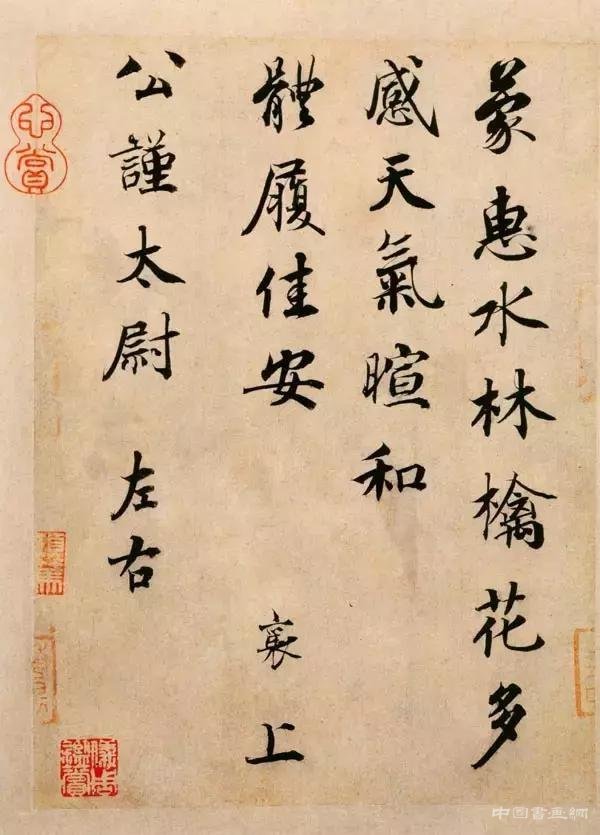 蒙惠水林檎花多
感天氣暄和
體履佳安 襄上
公謹太尉 左右
中國書畫網